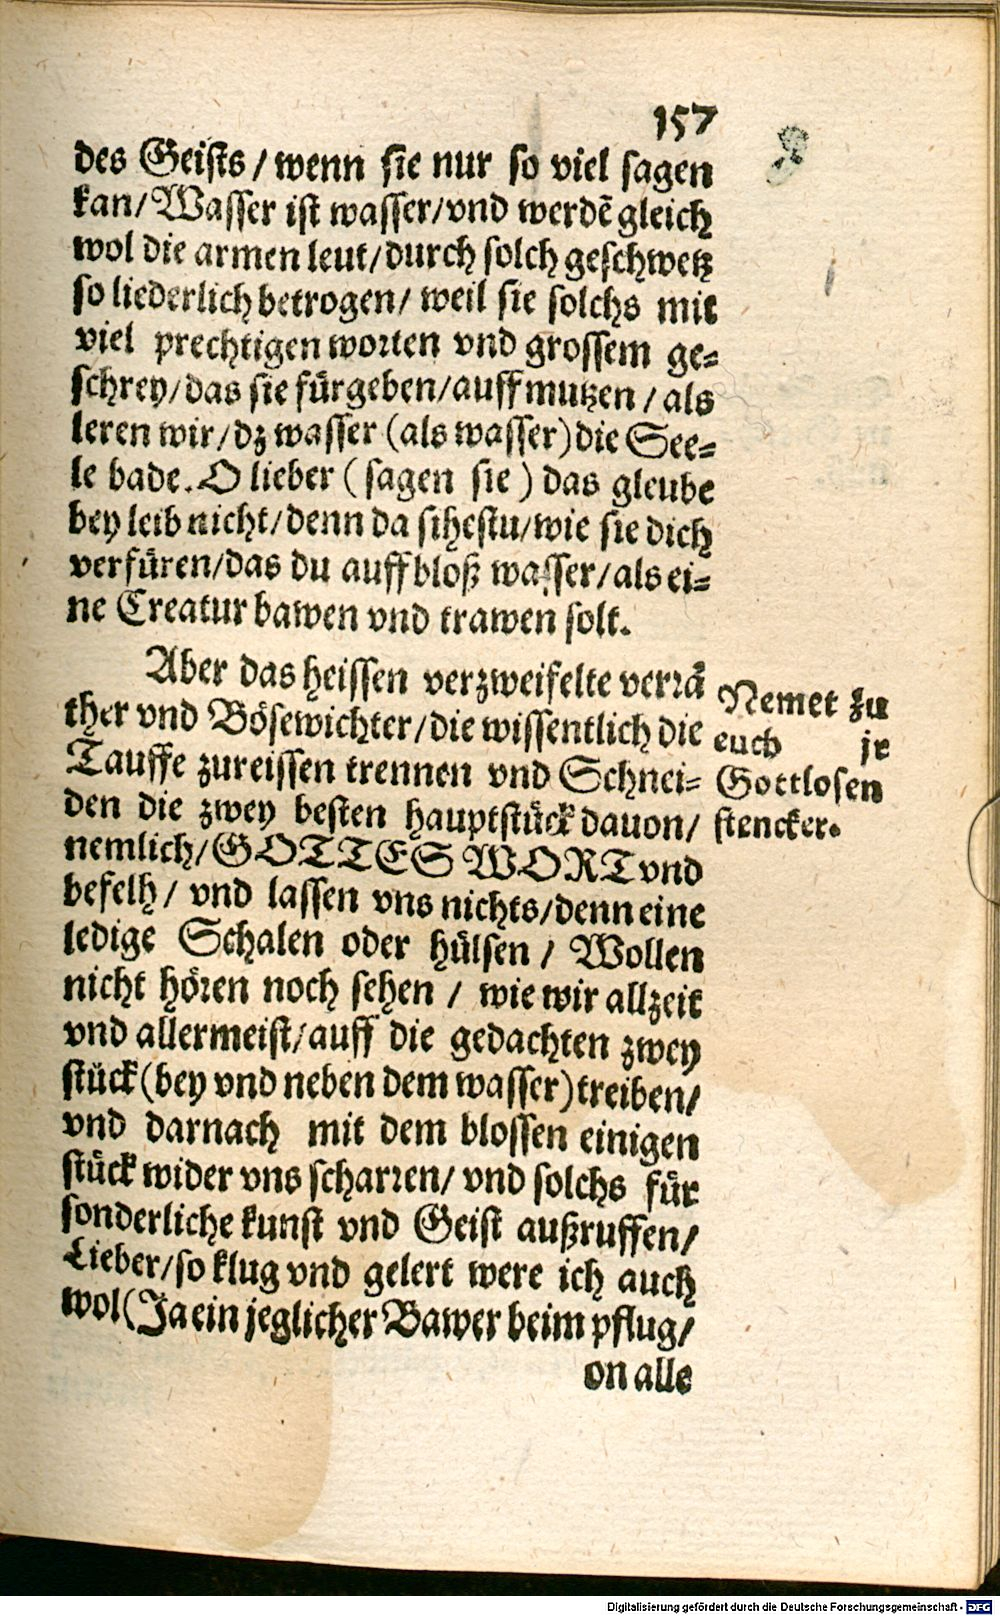 157
des Geists / wenn sie nur so viel sagen
kan / Wasser ist wasser / vnd werdē gleich
wol die armen leut / durch solch geschwetz
so liederlich betrogen / weil sie solchs mit
viel prechtigen worten vnd grossem ge=
schrey / das sie fürgeben / auffmutzen / als
leren wir / dz wasser (als wasser) die See=
le bade. O lieber ( sagen sie ) das gleube
bey leib nicht / denn da sihestu / wie sie dich
verfüren / das du auff bloß wasser / als ei=
ne Creatur bawen vnd trawen solt.
Aber das heissen verzweifelte verrä
ther vnd Bösewichter / die wissentlich die
Tauffe zureissen trennen vnd Schnei=
den die zwey besten hauptstück dauon /
nemlich / GOTTES WORT vnd
befelh / vnd lassen vns nichts / denn eine
ledige Schalen oder hülsen / Wollen
nicht hören noch sehen / wie wir allzeit
vnd allermeist / auff die gedachten zwey
stück (bey vnd neben dem wasser) treiben /
vnd darnach mit dem blossen einigen
stück wider vns scharren / vnd solchs für
sonderliche kunst vnd Geist außruffen /
Lieber / so klug vnd gelert were ich auch
wol (Ja ein jeglicher Bawer beim pflug /
on alle
Nemet zu
euch jr
Gottlosen
stencker.
Digitalisierung gefördert durch die Deutsche Forschungsgemeinschaft - DFG